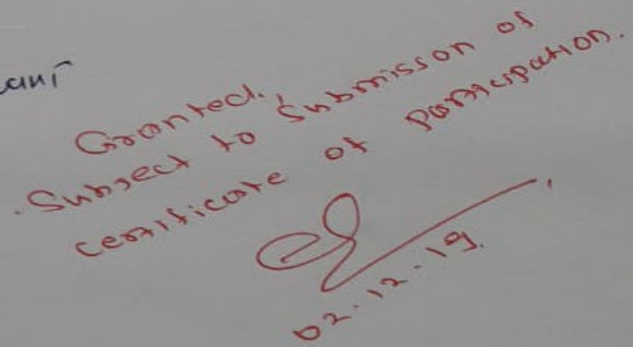 Granted,
Subject to Submisson of
certificate of Participation.
02.12.19.